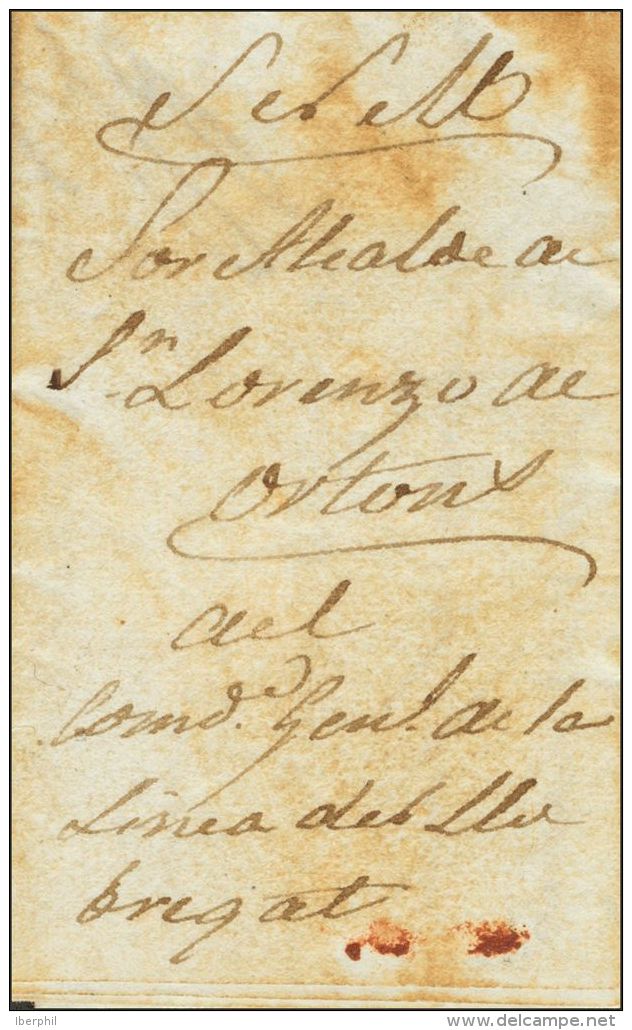 S. N. M.
Sor Alcalde de
Sn. Lorenzo de
Ortons
del
Comd.e Genl. de la
Linea del Llo
bregat
Iberphil
www.delcampe.net